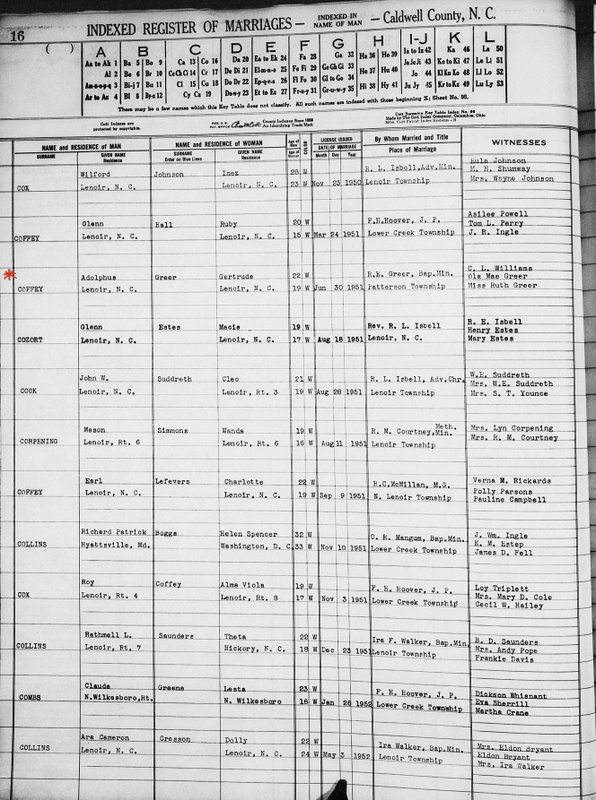 16
INDEXED REGISTER OF MARRIAGES— INDEXED IN NAME OF MAN — Caldwell County, N. C.
( )
A B C D E F G H I-J K L
Aa to Ak 1 Ba 5 Be 9 Ca 13 Co 16 Da 20 Ea to Ek 24 Fa 28 Ga 32 Ha 36 He 39 Ia to Iz 42 Ka 46 La 50
Al 2 Bo 6 Br 10 Ce Ch Ci 14 Cr 17 De Di 21 Fe Fi 29 Ge Gh Gi 33 Ja Je Ji 43 Ke to Ki 47 Le Li 51
Bi-j 7 Bu 11 Cl 15 Cu 18 Do Dr 22 Fl Fo 30 Gl to Go 34 Ho 37 Hu 40 Jo 44 Kl Ka Ko 48 Ll Lo 52
Ar to Az 4 Bl 8 By-z 12 Cy Cz 19 Du-w-y 23 Fr-u-y 31 Gr-u-w-y 35 Hi 38 Hy 41 Ju Jy 45 Kr to Kz 49 Lu Ly 53
There may be a few names which this Key Table does not classify. All such names are indexed under those beginning X; Sheet No. 98.
Cott indexes are protected by copyrights.
County Indexes Since 1888
An Identifying Trade Mark
Made by The Cott Index Company, Columbus, Ohio
NAME and RESIDENCE of MAN NAME and RESIDENCE of WOMAN COLOR LICENSE ISSUED By Whom Married and Title WITNESSES
SURNAME GIVEN NAME Residence SURNAME Enter on Blue Lines GIVEN NAME Residence DATE OF MARRIAGE Month Day Year Place of Marriage
Wilford Johnson Inez 28 W R. L. Isbell, Adv. Min. Eula Johnson
M. H. Shumway
COX Lenoir, N. C. Lenoir, N. C. 23 W Nov 23 1950 Lenoir Township Mrs. Wayne Johnson
Asilee Powell
Glenn Hall Ruby 20 W F.H.Hoover, J. P. Tom L. Perry
COFFEY Lenoir, N. C. Lenoir, N. C. 15 W Mar 24 1951 Lower Creek Township J. R. Ingle
C. L. Williams
Adolphus Greer Gertrude 22 W R.E. Greer, Bap.Min. Ola Mae Greer
COFFEY Lenoir, N. C. Lenoir, N. C. 19 W Jun 30 1951 Patterson Township Miss Ruth Greer
Glenn Estes Macie 19 W Rev. R. L. Isbell R. E. Isbell
Henry Estes
COZORT Lenoir, N. C. Lenoir, N. C. 17 W Aug 18 1951 Lenoir, N. C. Mary Estes
John W. Suddreth Cleo 21 W R. L. Isbell, Adv.Chr. W.E. Suddreth
Mrs. W.E. Suddreth
COOK Lenoir, N. C. Lenoir, Rt. 3 19 W Aug 28 1951 Lenoir Township Mrs. S. T. Younce
Mason Simmons Wanda 19 W R. M. Courtney, Meth. Min. Mrs. Lyn Corpening
CORPENING Lenoir, Rt. 6 Lenoir, Rt. 6 16 W Aug 11 1951 Lenoir Township Mrs. R. M. Courtney
Earl Lefevers Charlotte 22 W H.C.McMillan, M.G. Verna M. Rickards
Polly Parsons
COFFEY Lenoir, N. C. Lenoir, N. C. 19 W Sep 9 1951 N. Lenoir Township Pauline Campbell
Richard Patrick Boggs Helen Spencer 32 W C. R. Mangum, Bap.Min. J. Wm. Ingle
K. M. Estep
COLLINS Hyattsville, Md. Washington, D. C. 33 W Nov 10 1951 Lower Creek Township James D. Fell
Roy Coffey Alma Viola 19 W F. H. Hoover, J. P. Loy Triplett
Mrs. Mary D. Cole
COX Lenoir, Rt. 4 Lenoir, Rt. 8 17 W Nov 3 1951 Lower Creek Township Cecil W. Hailey
Rathmell L. Saunders Theta 22 W Ira F. Walker, Bap.Min. B. D. Saunders
Mrs. Andy Pope
COLLINS Lenoir, Rt. 7 Hickory, N. C. 18 W Dec 23 1951 Lenoir Township Frankie Davis
Claude Greene Lesta 23 W F. H. Hoover, J. P. Dickson Whisnant
Eva Sherrill
COMBS N.Wilkesboro,Rt. N. Wilkesboro 18 W Jan 26 1952 Lower Creek Township Martha Crane
Ara Cameron Cresson Dolly 22 W Ira Walker, Bap.Min. Mrs. Eldon Bryant
Eldon Bryant
COLLINS Lenoir, N. C. Lenoir, N. C. 24 W May 3 1952 Lenoir Township Mrs. Ira Walker